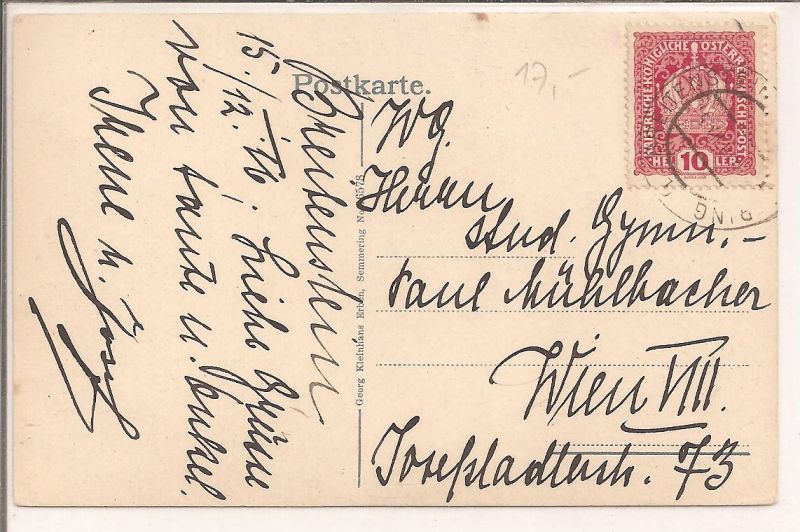 Postkarte.
17,-
Breitenstein
15./12. 16. Liebe Grüsse
von Tante u. Onkel.
Irene u. Josef
Georg Kleinhans Erben, Semmering No. 6578
Wg.
Herrn
stud. Gymn.-
Paul Mühlbacher
Wien VIII.
Josefstädterstr. 73
KAISERLICHE KÖNIGLICHE ÖSTERREICHISCHE POST
HELLER
10